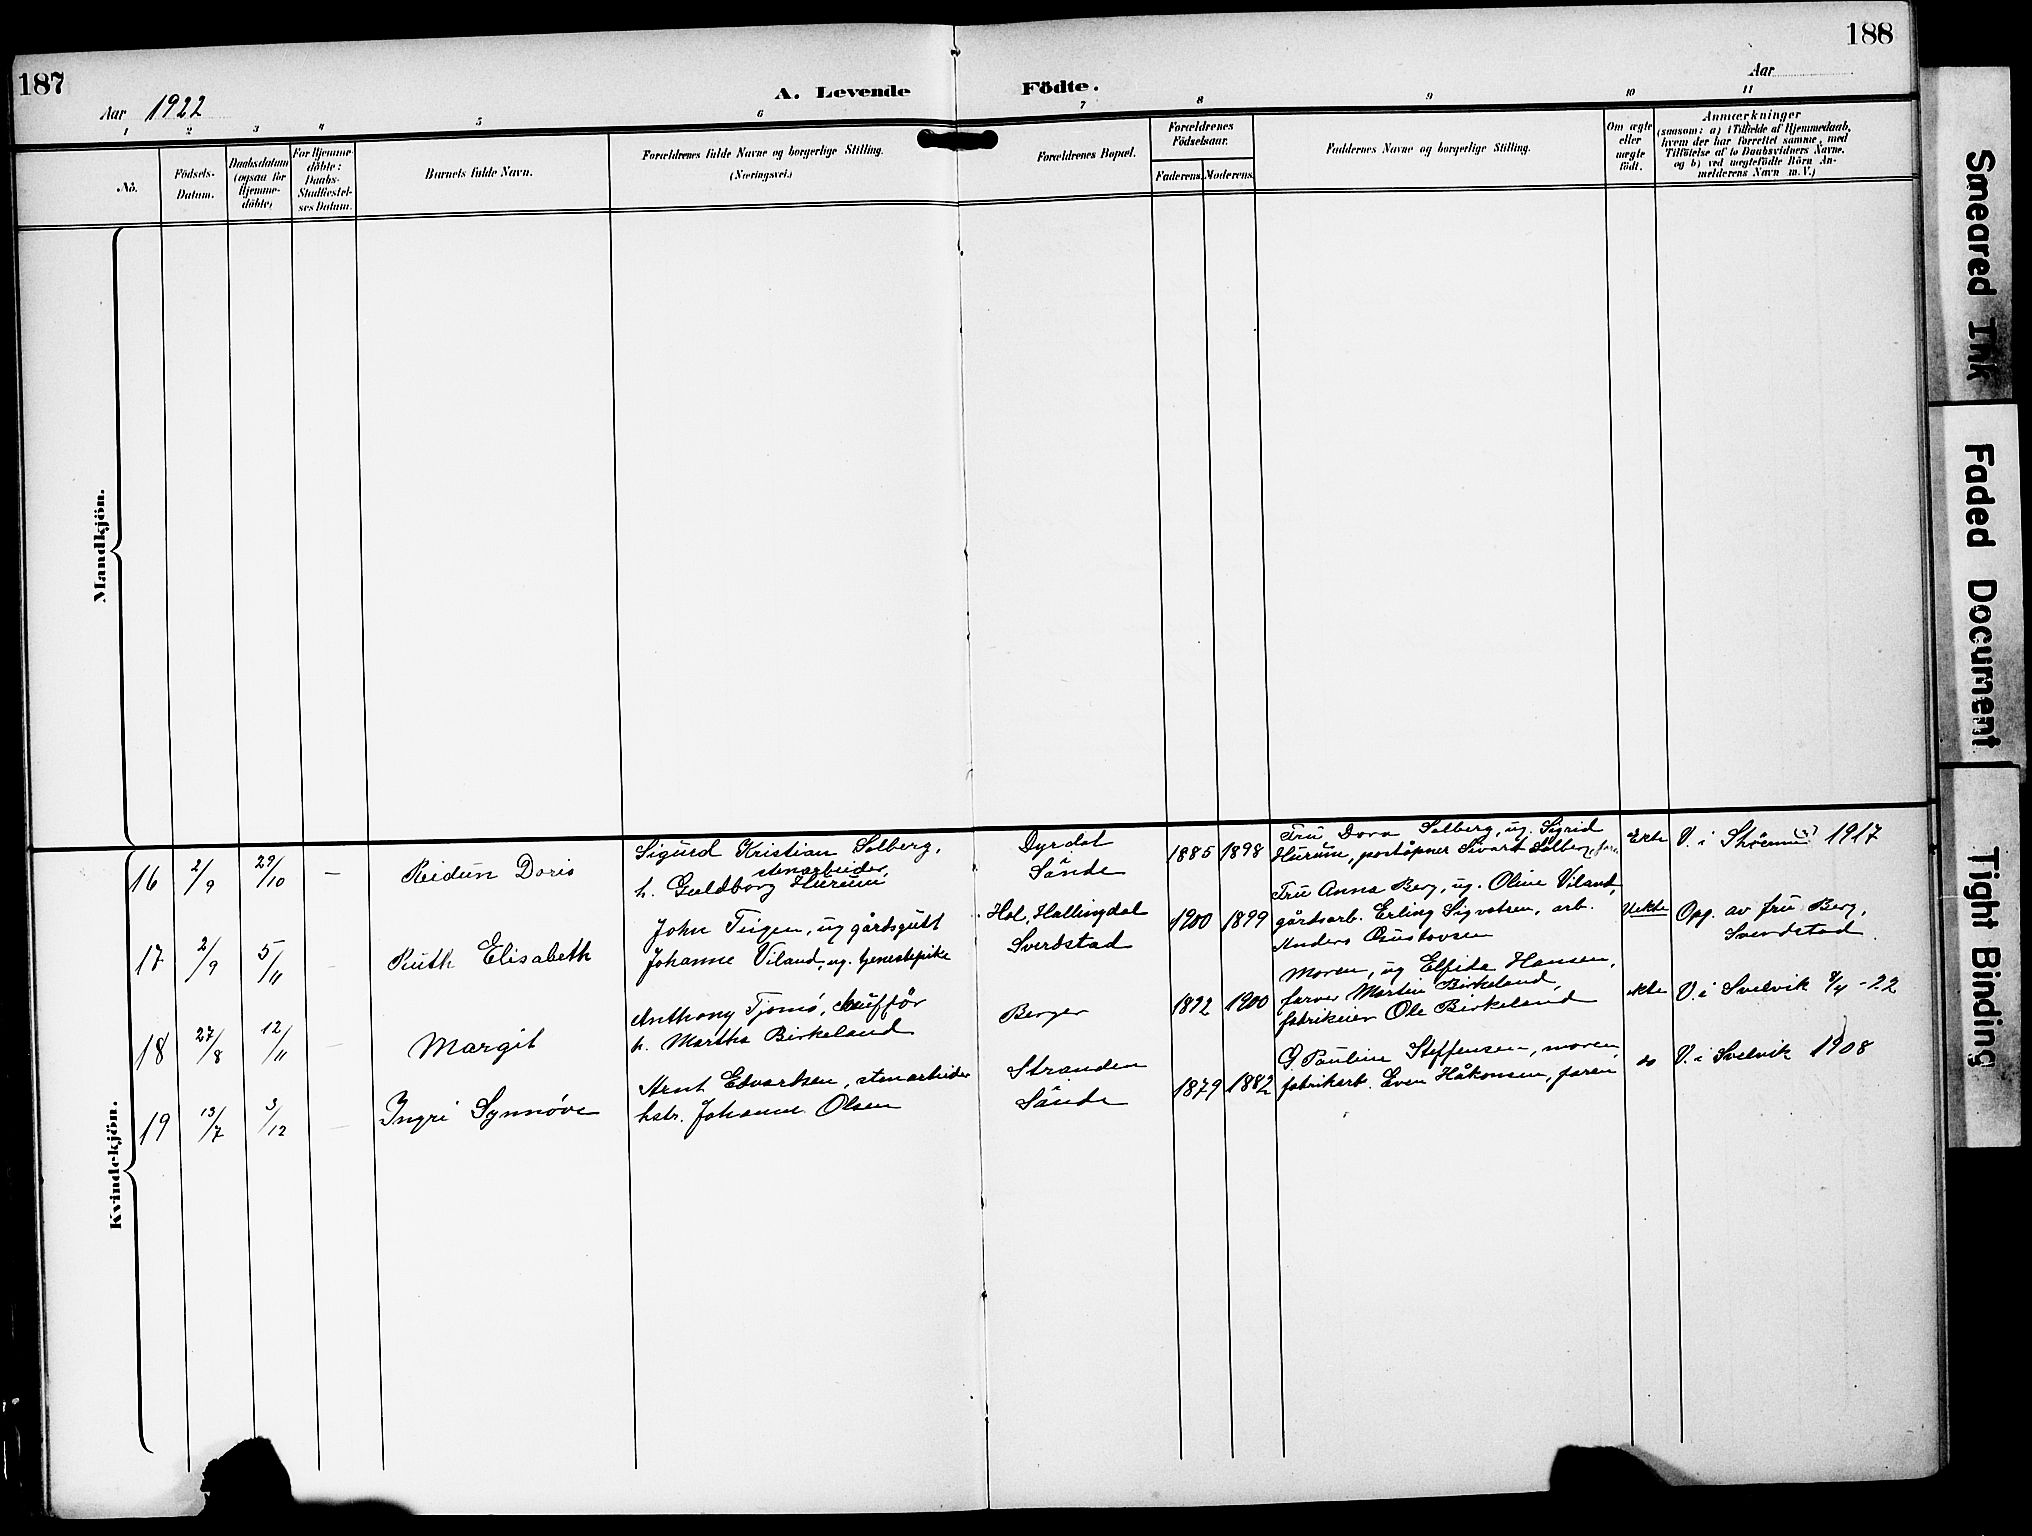 187
188
Aar 1922
A. Levende Födte.
Aar
1 2 3 4 5 6 7 8 9 10 11
No.
Födsels-
Datum.
Daabsdatum
(ogsaa for
Hjemme-
döbte)
For Hjemme-
döbte:
Daabs-
Stadfæstel-
ses Datum.
Barnets fulde Navn.
Forældrenes fulde Navne og borgerlige Stilling.
(Næringsvei.)
Forældrenes Bopæl.
Forældrenes
Födselsaar.
Faderens. Moderens.
Faddernes Navne og borgerlige Stilling.
Om ægte
eller
uægte
födt.
Anmærkninger
(saasom: a) i Tilfælde af Hjemmedaab,
hvem der har forrettet samme, med
Tilföielse af to Daabsvidners Navne.
og b) ved uægtefödte Börn An-
melderens Navn m. V.)
Mandkjön.
Kvindekjön.
16 2/9 29/10 — Reidun Doris
Sigurd Kristian Solberg,
stenarbeider,
h. Guldborg Hurum
Dyrdal
Sande
1885 1898
Fru Dora Solberg, ug. Sigrid
Hurum, poståpner Sivart Solberg, faren
Ekte
V. i Strömm (?) 1917
17 2/9 5/11 — Ruth Elisabeth
John Teigen, ug gårdsgutt
Johanne Viland, ug. tjenestepike
Hol, Hallingdal
Sverdstad
1900 1899
Fru Anna Berg, ug. Oline Viland,
gårdsarb. Erling Sigvatsen, arb.
Anders Gustavsen
Uekte
Opg. av fru Berg,
Sverdstad
18 27/8 12/11 — Margit
Anthony Tjomö, chauffør
h. Martha Birkeland
Berger
1892 1900
Moren, ug Elfida Hansen,
farver Martin Birkeland,
fabrikeier Ole Birkeland
ekte
V. i Svelvik 8/4 - 22
19 13/7 3/12 — Ingri Synnøve
Arnt Edvardsen, stenarbeider
hstr. Johanne Olsen
Stranden
Sande
1879 1882
G. Pauline Steffensen, moren,
fabrikarb. Even Håkonsen, faren
do
V. i Svelvik 1908
Smeared Ink
Faded Document
Tight Binding